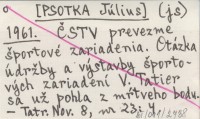 [PSOTKA Július] (js)
1961. ČSTV prevezme
športové zariadenia. Otázka
údržby a výstavby športo-
vých zariadení V. Tatier
sa už pohla z mŕtveho bodu.
- Tatr. Nov. 8, nr 23: 4.